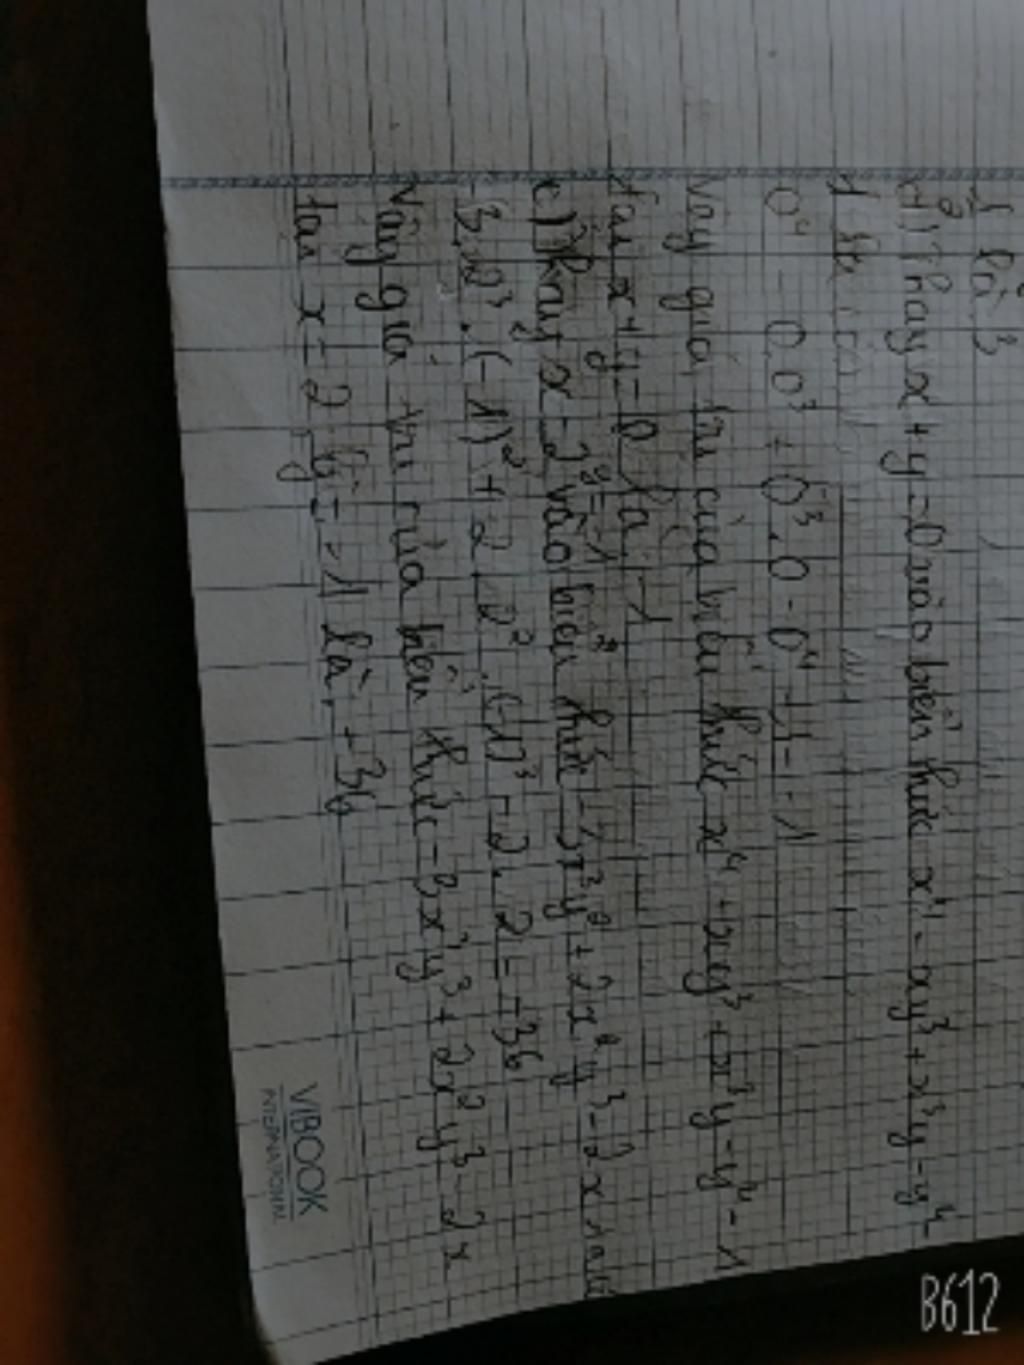 là 3
d) Thay x + y = 0 vào biểu thức x⁴ - xy³ + x³y - y⁴
0⁴ - 0.0³ + 0³.0 - 0⁴ - 1 = -1
Vậy giá trị của biểu thức x⁴ - xy³ + x³y - y⁴ - 1
tại x + y = 0 là -1
e) Thay x = 2 y = -1 vào biểu thức -3x³y² + 2x²y³ - 2x
-3.2³.(-1)² + 2.2².(-1)³ - 2.2 = -36
Vậy giá trị của biểu thức -3x³y³ + 2x²y³ - 2x
tại x = 2 y = -1 là -36
VIBOOK
INTERNATIONAL
B612